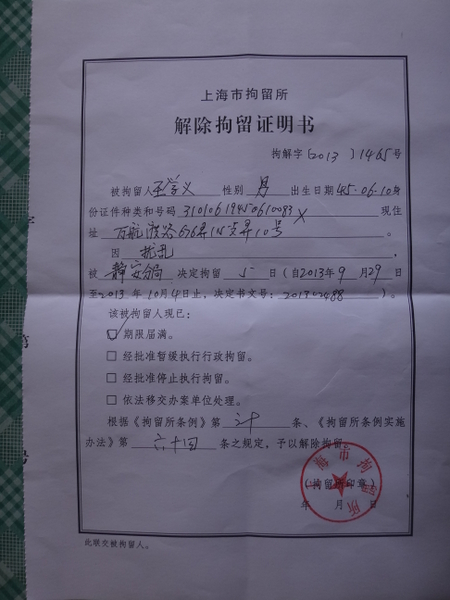 上海市拘留所
解除拘留证明书
拘解字〔2013〕1465号
被拘留人 王学义 性别 男 出生日期 45.06.10 身
份证件种类和号码 310106194506100083X 现住
址 万航渡路676弄15支弄10号。
因 扰乱 ,
被 静安分局 决定拘留 5 日（自2013年9月29日
至2013年10月4日止，决定书文号：201302488）。
该被拘留人现已：
☑ 期限届满。
□ 经批准暂缓执行行政拘留。
□ 经批准停止执行拘留。
□ 依法移交办案单位处理。
根据《拘留所条例》第 卅 条、《拘留所条例实施
办法》第 六十四 条之规定，予以解除拘留。
上海市拘留所
（拘留所印章）
年 月 日
此联交被拘留人。